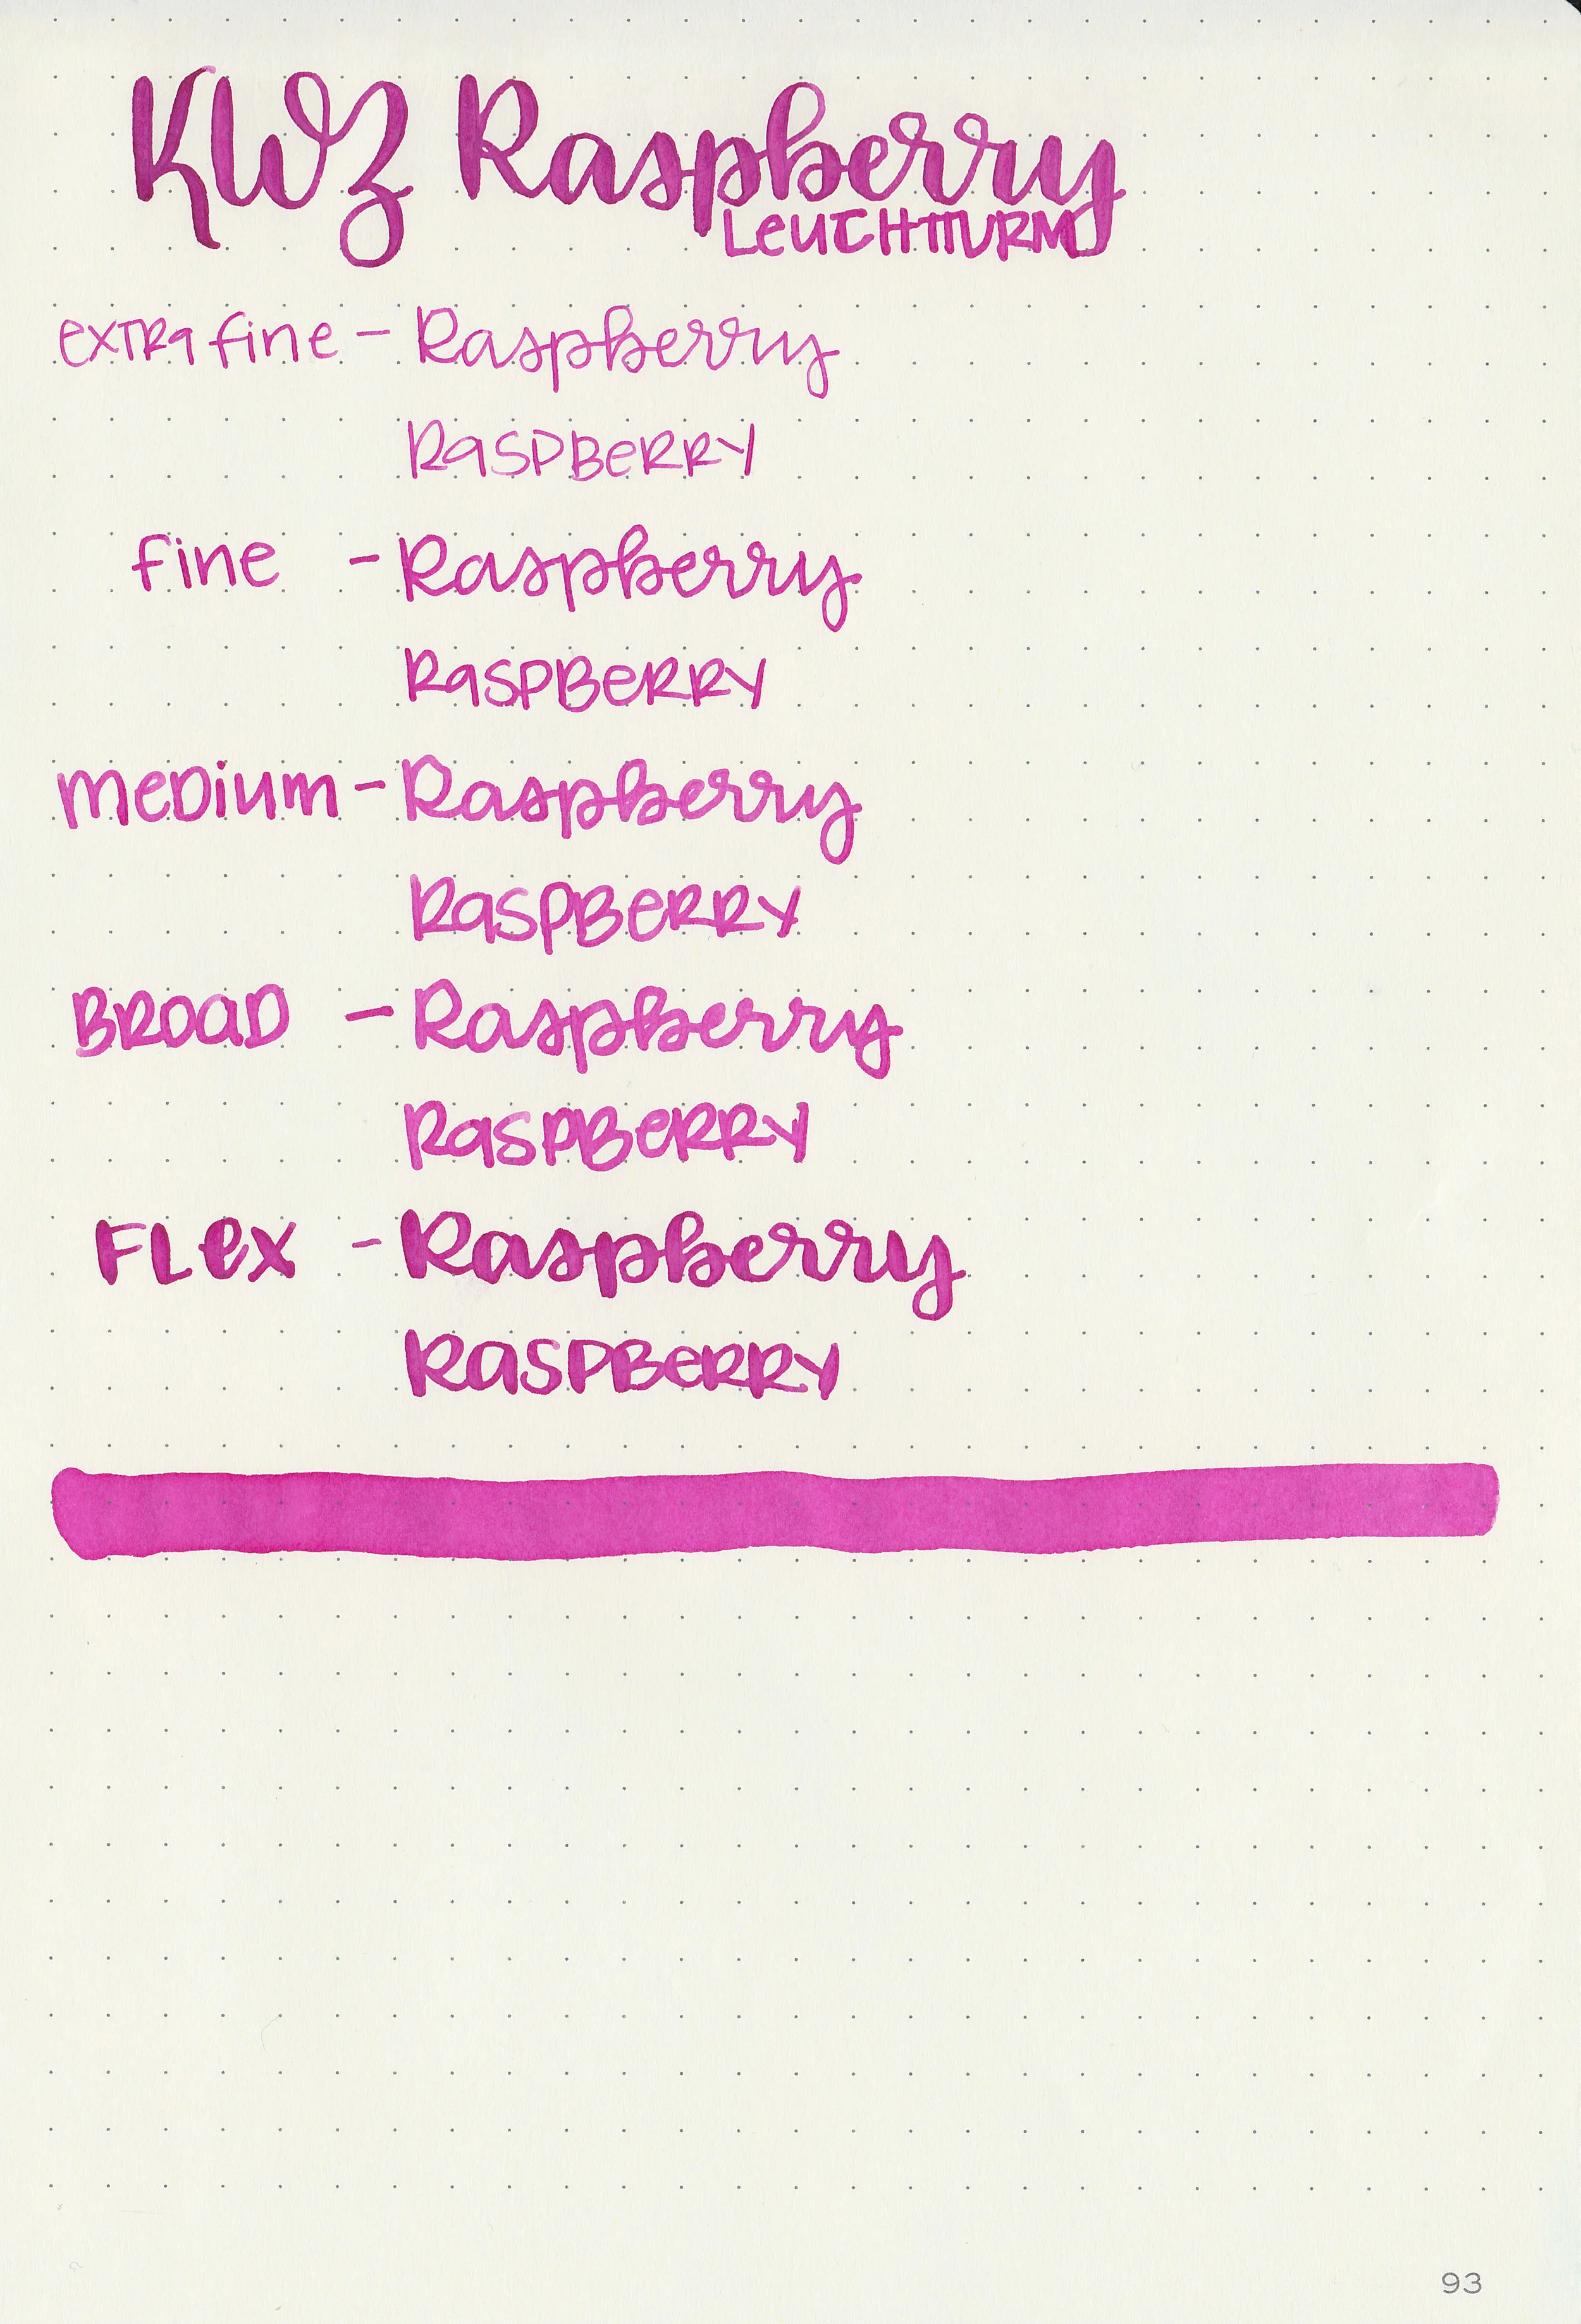 KWZ Raspberry
LeUCHTTURM
eXTRa fine - Raspberry
RaSPBeRRY
fine - Raspberry
RaSPBeRRY
meDium - Raspberry
RaSPBeRRY
BROaD - Raspberry
RaSPBeRRY
FLex - Raspberry
RaSPBeRRY
93